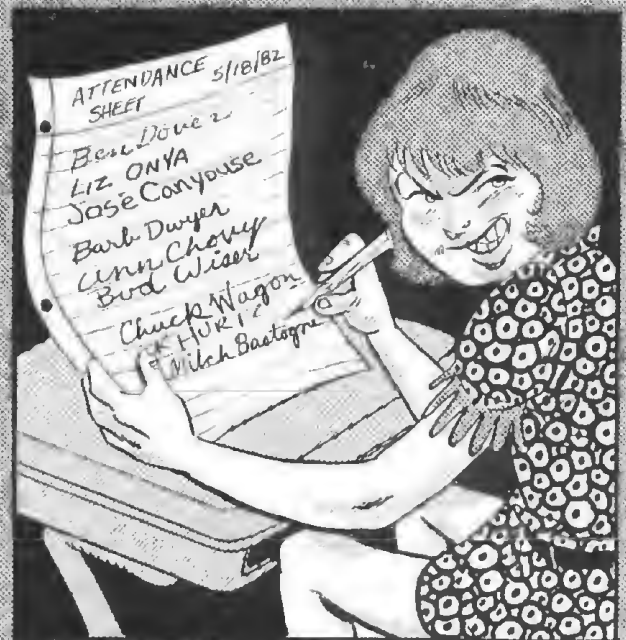 ATTENDANCE
SHEET 5/18/82
Ben Dover
Liz ONYA
José Canyouse
Barb Dwyer
Ann Chovy
Bud Wiser
Chuck Wagon
HURT
Mitch Bastogne